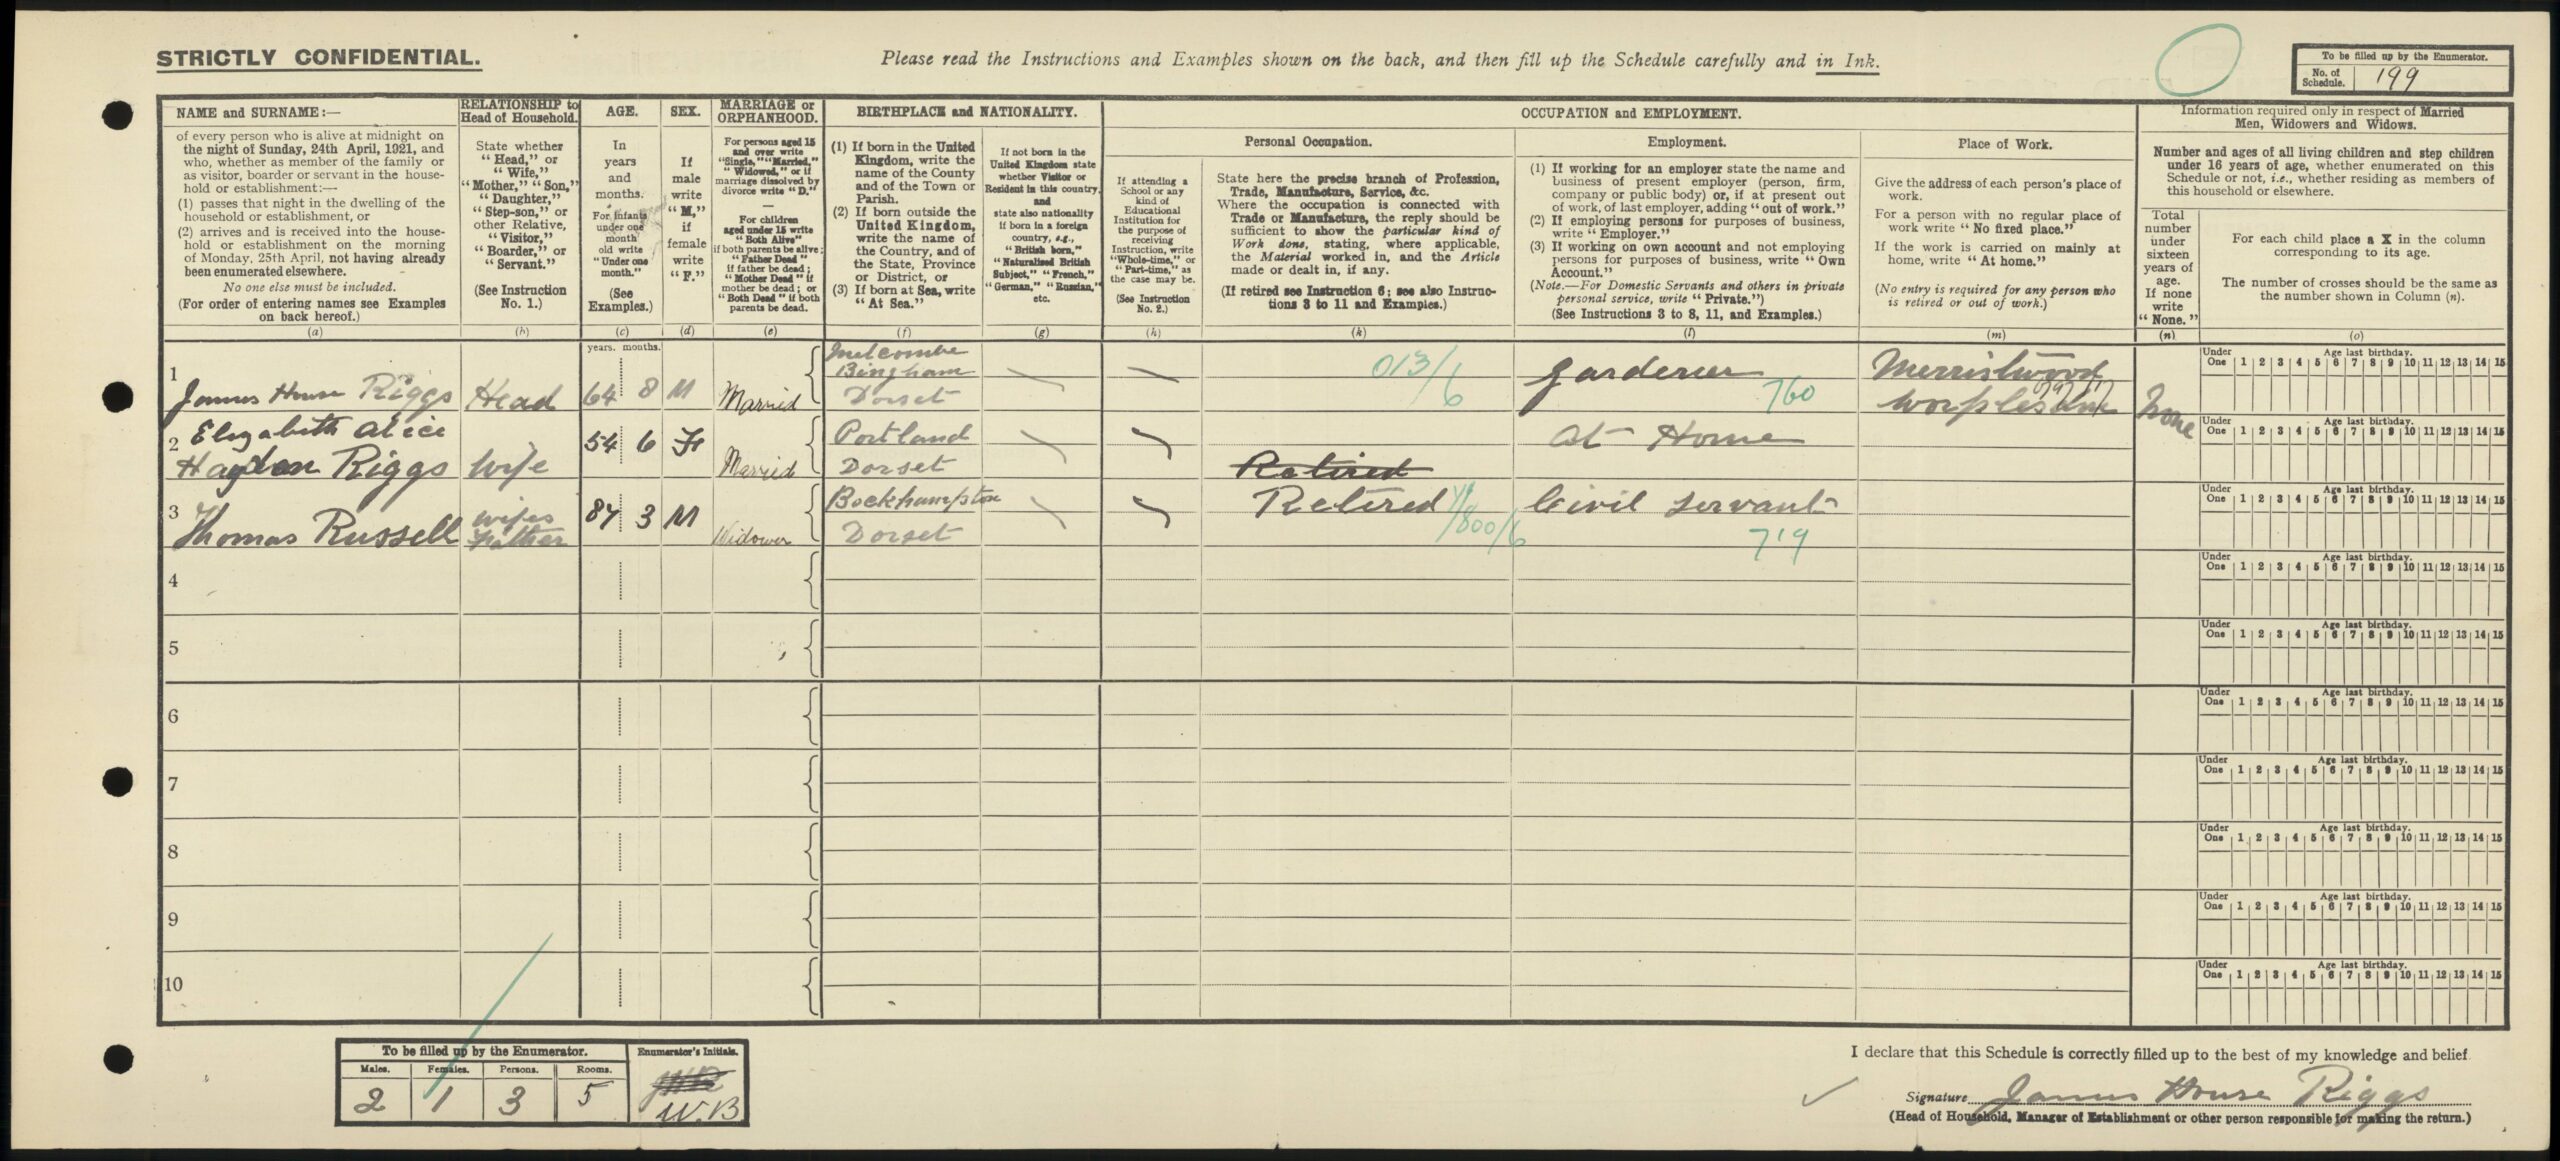 STRICTLY CONFIDENTIAL.
Please read the Instructions and Examples shown on the back, and then fill up the Schedule carefully and in Ink.
To be filled up by the Enumerator.
No. of Schedule. 199
NAME and SURNAME:—
of every person who is alive at midnight on
the night of Sunday, 24th April, 1921, and
who, whether as member of the family or
as visitor, boarder or servant in the house-
hold or establishment:—
(1) passes that night in the dwelling of the
household or establishment, or
(2) arrives and is received into the house-
hold or establishment on the morning
of Monday, 25th April, not having already
been enumerated elsewhere.
No one else must be included.
(For order of entering names see Examples
on back hereof.)
(a)
RELATIONSHIP to
Head of Household.
State whether
"Head," or
"Wife,"
"Mother," "Son,"
"Daughter,"
"Step-son," or
other Relative,
"Visitor,"
"Boarder," or
"Servant."
(See Instruction
No. 1.)
(b)
AGE.
In
years
and
months.
For Infants
under one
month
old write
"Under one
month."
(See
Examples.)
(c)
SEX.
If
male
write
"M,"
if
female
write
"F."
(d)
MARRIAGE or
ORPHANHOOD.
For persons aged 15
and over write
"Single," "Married,"
"Widowed," or if
marriage dissolved by
divorce write "D."
—
For children
aged under 15 write
"Both Alive"
if both parents be alive;
"Father Dead"
if father be dead;
"Mother Dead" if
mother be dead; or
"Both Dead" if both
parents be dead.
(e)
BIRTHPLACE and NATIONALITY.
(1) If born in the United
Kingdom, write the
name of the County
and of the Town or
Parish.
(2) If born outside the
United Kingdom,
write the name of
the Country, and of
the State, Province
or District, or
(3) If born at Sea, write
"At Sea."
(f)
If not born in the
United Kingdom state
whether Visitor or
Resident in this country,
and
state also nationality
if born in a foreign
country, e.g.,
"British born,"
"Naturalised British
Subject," "French,"
"German," "Russian,"
etc.
(g)
OCCUPATION and EMPLOYMENT.
If attending a
School or any
kind of
Educational
Institution for
the purpose of
receiving
Instruction, write
"Whole-time," or
"Part-time," as
the case may be.
(See Instruction
No. 2.)
(h)
Personal Occupation.
State here the precise branch of Profession,
Trade, Manufacture, Service, &c.
Where the occupation is connected with
Trade or Manufacture, the reply should be
sufficient to show the particular kind of
Work done, stating, where applicable,
the Material worked in, and the Article
made or dealt in, if any.
(If retired see Instruction 6; see also Instruc-
tions 3 to 11 and Examples.)
(k)
Employment.
(1) If working for an employer state the name and
business of present employer (person, firm,
company or public body) or, if at present out
of work, of last employer, adding "out of work."
(2) If employing persons for purposes of business,
write "Employer."
(3) If working on own account and not employing
persons for purposes of business, write "Own
Account."
(Note.—For Domestic Servants and others in private
personal service, write "Private.")
(See Instructions 3 to 8, 11, and Examples.)
(l)
Place of Work.
Give the address of each person's place of
work.
For a person with no regular place of
work write "No fixed place."
If the work is carried on mainly at
home, write "At home."
(No entry is required for any person who
is retired or out of work.)
(m)
Information required only in respect of Married
Men, Widowers and Widows.
Number and ages of all living children and step children
under 16 years of age, whether enumerated on this
Schedule or not, i.e., whether residing as members of
this household or elsewhere.
Total
number
under
sixteen
years of
age.
If none
write
"None."
(n)
For each child place a X in the column
corresponding to its age.
The number of crosses should be the same as
the number shown in Column (n).
(o)
years. months.
1 James House Riggs Head 64 8 M Married Melcombe Bingham Dorset 013/6 Gardener 760 Merristwood Worplesdon None
2 Elizabeth Alice Hayden Riggs Wife 54 6 F Married Portland Dorset At Home
Retired
3 Thomas Russell Wifes Father 87 3 M Widower Bockhampton Dorset Retired 800/6 Civil Servant 719
4
5
6
7
8
9
10
Under One Age last birthday. 1 2 3 4 5 6 7 8 9 10 11 12 13 14 15
Under One Age last birthday. 1 2 3 4 5 6 7 8 9 10 11 12 13 14 15
Under One Age last birthday. 1 2 3 4 5 6 7 8 9 10 11 12 13 14 15
Under One Age last birthday. 1 2 3 4 5 6 7 8 9 10 11 12 13 14 15
Under One Age last birthday. 1 2 3 4 5 6 7 8 9 10 11 12 13 14 15
Under One Age last birthday. 1 2 3 4 5 6 7 8 9 10 11 12 13 14 15
Under One Age last birthday. 1 2 3 4 5 6 7 8 9 10 11 12 13 14 15
Under One Age last birthday. 1 2 3 4 5 6 7 8 9 10 11 12 13 14 15
Under One Age last birthday. 1 2 3 4 5 6 7 8 9 10 11 12 13 14 15
Under One Age last birthday. 1 2 3 4 5 6 7 8 9 10 11 12 13 14 15
To be filled up by the Enumerator.
Males. Females. Persons. Rooms.
2 1 3 5
Enumerator's Initials.
W.B
I declare that this Schedule is correctly filled up to the best of my knowledge and belief
Signature James House Riggs
(Head of Household, Manager of Establishment or other person responsible for making the return.)